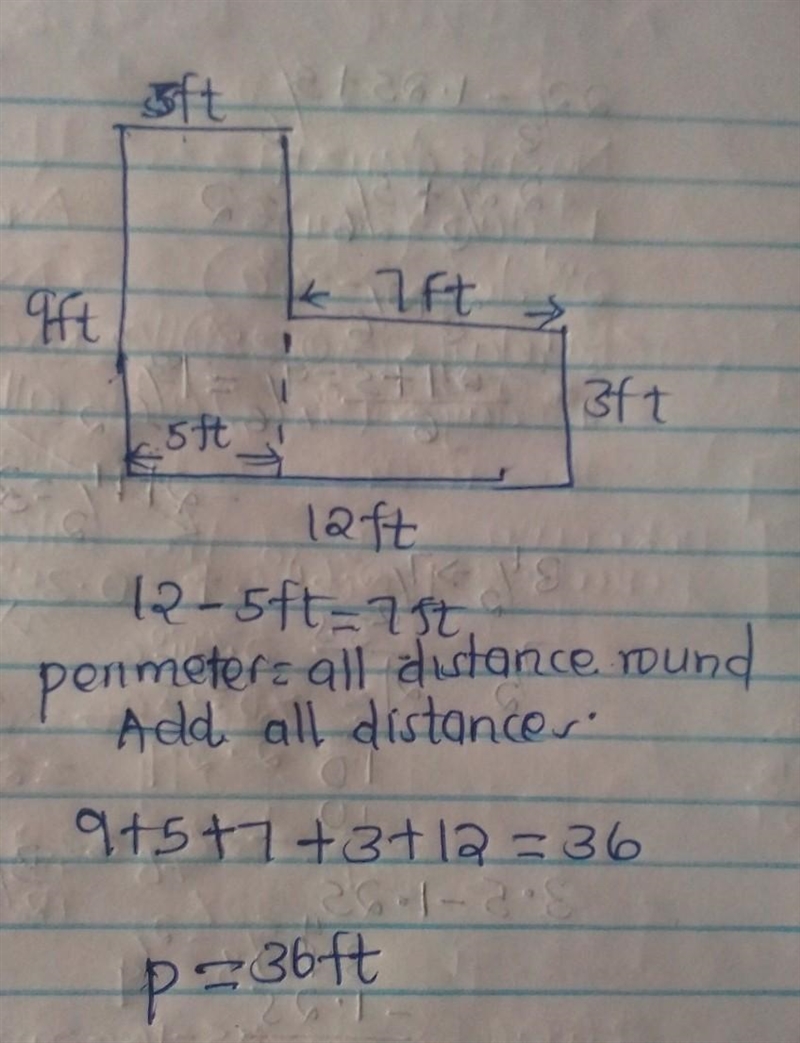 5ft
7ft
9ft
3ft
5ft
12ft
12-5ft=7ft
perimeter= all distance round
Add all distances.
9+5+7+3+12=36
p=36ft